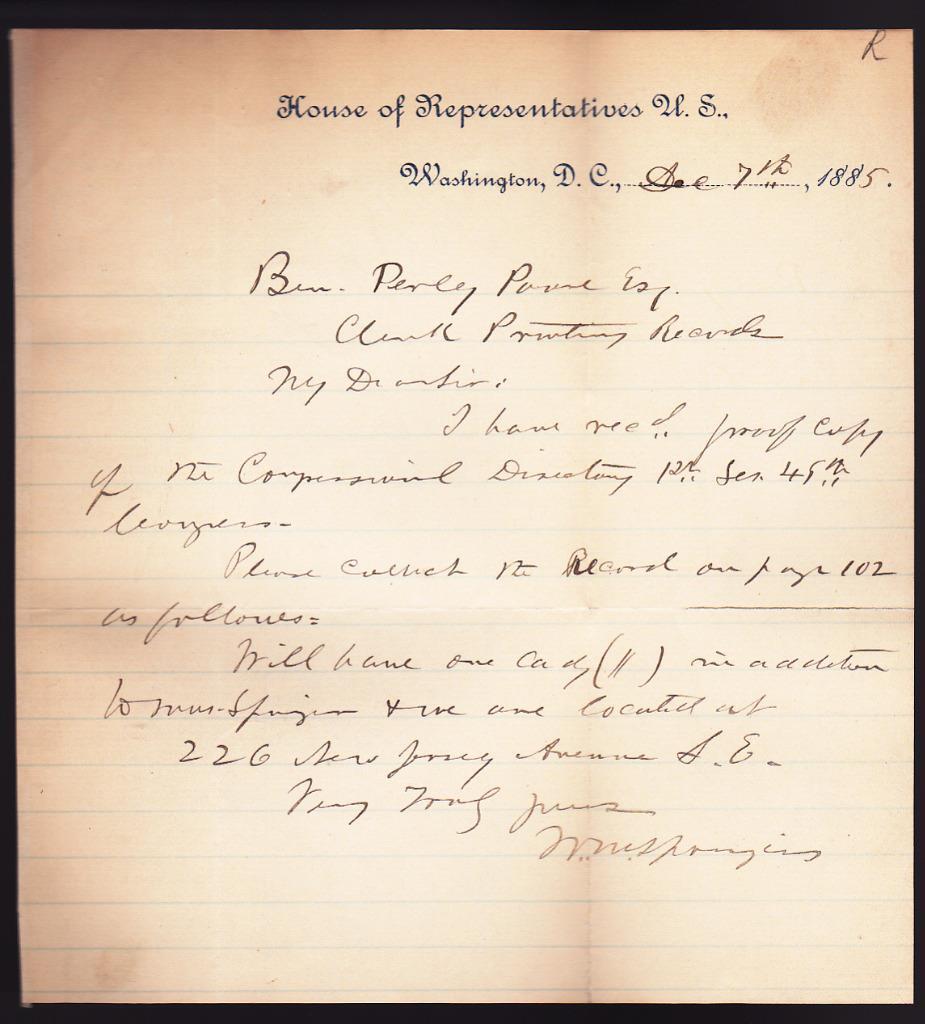 R
House of Representatives U. S.,
Washington, D. C., Dec 7th, 1885.
Ben. Perley Poore Esq.
Clerk Printing Records
My Dear Sir:
I have recd. proof copy
of the Congressional Directory 1st. Ses. 49th.
Congress-
Please correct the Record on page 102
as follows=
Will have one lady (||) in addition
to Mrs. Springer & we are located at
226 New Jersey Avenue S. E.
Very Truly yours
Wm. Springer